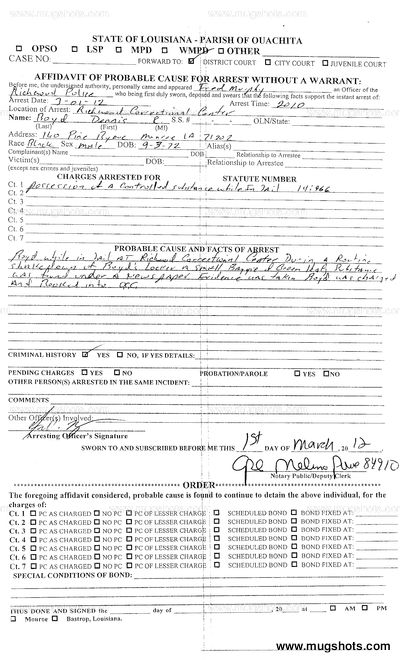 STATE OF LOUISIANA - PARISH OF OUACHITA
☐ OPSO ☐ LSP ☐ MPD ☐ WMPD ☐ OTHER
CASE NO. FORWARD TO: ☑ DISTRICT COURT ☐ CITY COURT ☐ JUVENILE COURT
AFFIDAVIT OF PROBABLE CAUSE FOR ARREST WITHOUT A WARRANT:
Before me, the undersigned authority, personally came and appeared Fred Murphy an Officer of the
Richwood Police who being first duly sworn, deposed and swears that the following facts support the instant arrest of:
Arrest Date: 3-01-12 Arrest Time: 2010
Location of Arrest: Richwood Correctional Center
Name: Boyd Dennis R S.S. # OLN/State:
(Last) (First) (MI)
Address: 140 Pine Monroe LA 71202
Race Black Sex male DOB: 9-3-72 Alias(s)
Complainant(s) Name DOB: Relationship to Arrestee
Victim(s) DOB: Relationship to Arrestee
(except sex entries and juveniles)
CHARGES ARRESTED FOR STATUTE NUMBER
Ct. 1 Possession of A Controlled substance while In Jail 14:966
Ct. 2
Ct. 3
Ct. 4
Ct. 5
Ct. 6
Ct. 7
PROBABLE CAUSE AND FACTS OF ARREST
Boyd while in Jail AT Richwood Correctional Center During a Routine
shakedown of Boyd's Locker a small Bagged Green Substance
was found under a Newspaper Evidence was taken Boyd was charged
And Booked into OCC.
CRIMINAL HISTORY ☑ YES ☐ NO, IF YES DETAILS:
PENDING CHARGES ☐ YES ☐ NO PROBATION/PAROLE ☐ YES ☐ NO
OTHER PERSON(S) ARRESTED IN THE SAME INCIDENT:
COMMENTS
Other Officer(s) Involved:
Arresting Officer's Signature
SWORN TO AND SUBSCRIBED BEFORE ME THIS 1st DAY OF March, 20 12
Cpl 84910
Notary Public/Deputy Clerk
ORDER
The foregoing affidavit considered, probable cause is found to continue to detain the above individual, for the
charges of:
Ct. 1 ☐ PC AS CHARGED ☐ NO PC ☐ PC OF LESSER CHARGE ☐ SCHEDULED BOND ☐ BOND FIXED AT:
Ct. 2 ☐ PC AS CHARGED ☐ NO PC ☐ PC OF LESSER CHARGE ☐ SCHEDULED BOND ☐ BOND FIXED AT:
Ct. 3 ☐ PC AS CHARGED ☐ NO PC ☐ PC OF LESSER CHARGE ☐ SCHEDULED BOND ☐ BOND FIXED AT:
Ct. 4 ☐ PC AS CHARGED ☐ NO PC ☐ PC OF LESSER CHARGE ☐ SCHEDULED BOND ☐ BOND FIXED AT:
Ct. 5 ☐ PC AS CHARGED ☐ NO PC ☐ PC OF LESSER CHARGE ☐ SCHEDULED BOND ☐ BOND FIXED AT:
Ct. 6 ☐ PC AS CHARGED ☐ NO PC ☐ PC OF LESSER CHARGE ☐ SCHEDULED BOND ☐ BOND FIXED AT:
Ct. 7 ☐ PC AS CHARGED ☐ NO PC ☐ PC OF LESSER CHARGE ☐ SCHEDULED BOND ☐ BOND FIXED AT:
SPECIAL CONDITIONS OF BOND:
THUS DONE AND SIGNED the day of , 20 at ☐ AM ☐ PM
☐ Monroe ☐ Bastrop, Louisiana.
www.mugshots.com